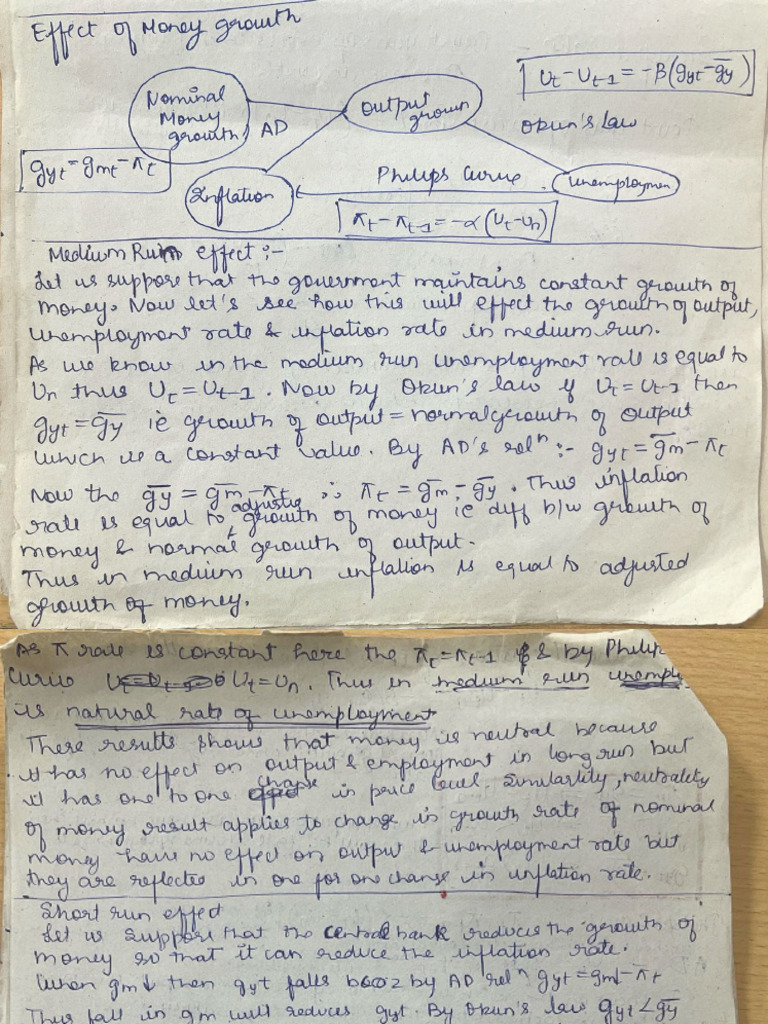 Effect of Money growth
Nominal Money growth
Output grown
Ut - Ut-1 = -β(gyt - g̅y)
AD
Okun's law
gyt = gmt - πt
Inflation
Philips Curve
Unemploymen
πt - πt-1 = -α (Ut - Un)
Medium Run effect :-
Let us suppose that the government maintains constant growth of
money. Now let's see how this will effect the growth of output,
unemployment rate & inflation rate in medium run.
As we know in the medium run unemployment rate is equal to
Un thus Ut = Ut-1. Now by Okun's law if Ut = Ut-1 then
gyt = g̅y ie growth of output = normal growth of output
which is a constant value. By AD's relⁿ :- gyt = g̅m - πt
Now the g̅y = g̅m - πt ∴ πt = g̅m - g̅y. Thus inflation
rate is equal to adjustig growth of money ie diff b/w growth of
money & normal growth of output.
Thus in medium run inflation is equal to adjusted
growth of money.
As π rate is constant here the πt = πt-1 & by Philip
Curve Ut = Un. Thus in medium run unempl
is natural rate of unemployment
These results shows that money is neutral because
it has no effect on output & employment in long run but
it has one to one change in price level. Similarlity, neutrality
of money result applies to change in growth rate of nominal
money have no effect on output & unemployment rate but
they are reflected in one for one change in inflation rate.
Short run effect
Let us suppose that the central bank reduces the growth of
money so that it can reduce the inflation rate.
When gm↓ then gyt falls bcoz by AD relⁿ gyt = gm↓ - πt
Thus fall in gm will reduces gyt. By Okun's law gyt < g̅y